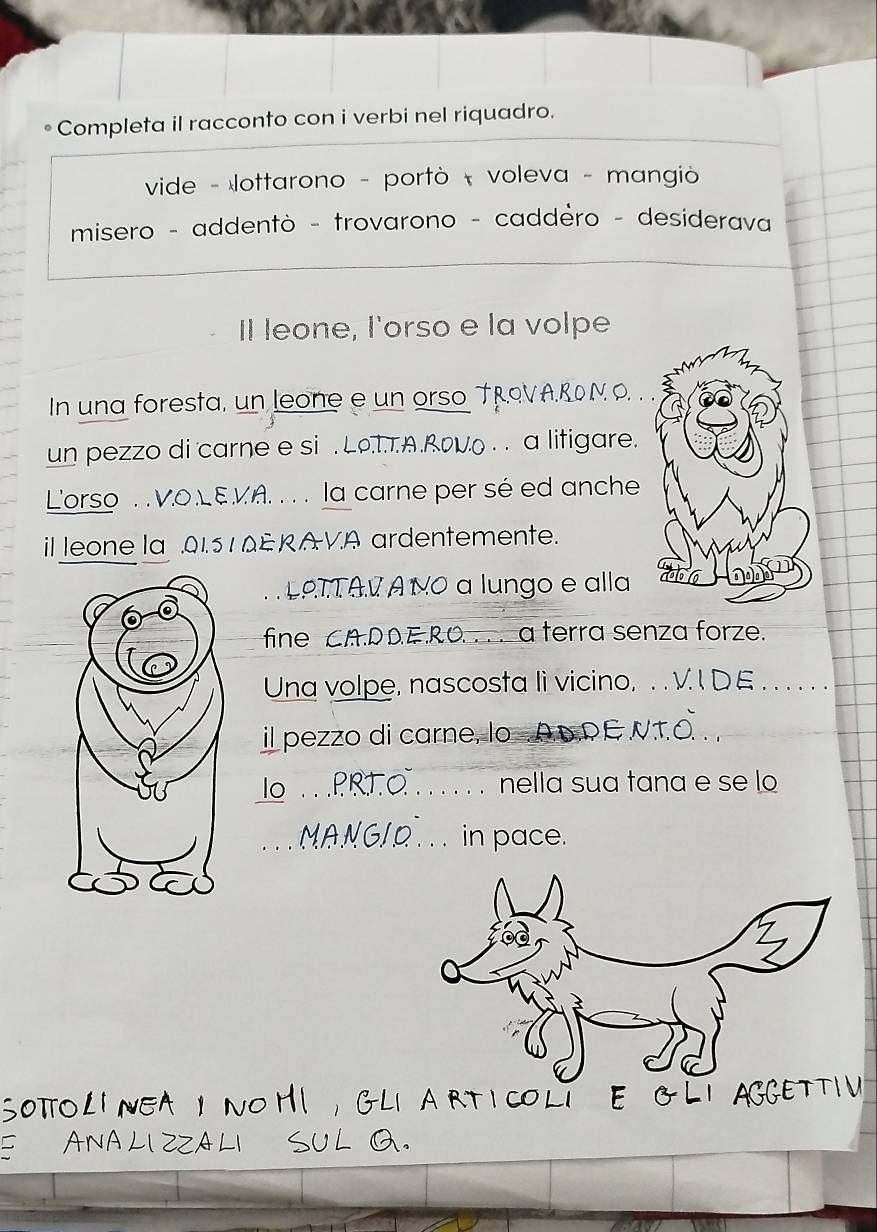 Completa il racconto con i verbi nel riquadro.
vide - lottarono - portò - voleva - mangiò
misero - addentò - trovarono - caddero - desiderava
Il leone, l'orso e la volpe
In una foresta, un leone e un orso TROVARONO...
un pezzo di carne e si .LOTTARONO.. a litigare.
L'orso ..VOLEVA.... la carne per sé ed anche
il leone la .DISIDERAVA ardentemente.
..LOTTAVANO a lungo e alla
fine CADDERO.... a terra senza forze.
Una volpe, nascosta lì vicino, ..VIDE.....
il pezzo di carne, lo ADDENTÒ..,
lo ...PRTÒ...... nella sua tana e se lo
...MANGIÒ... in pace.
SOTTOLINEA I NOMI, GLI ARTICOLI E GLI AGGETTIV
E ANALIZZALI SUL Q.